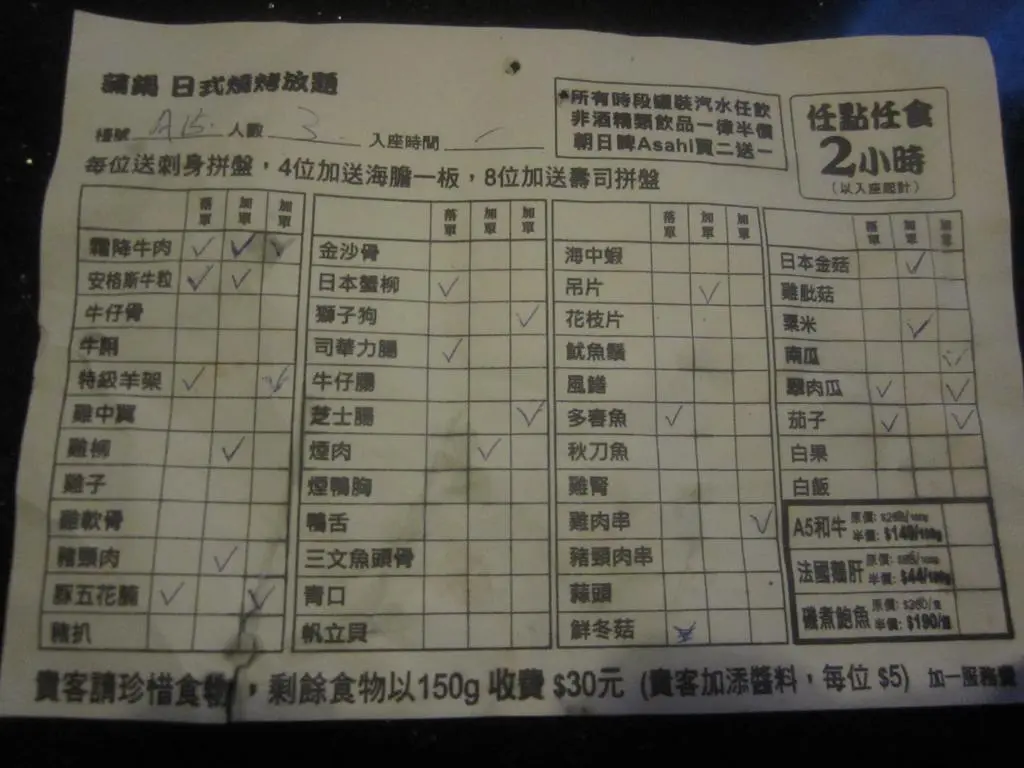 鍋 日式燒烤放題
檯號 A15. 人數 3 入座時間
*所有時段罐裝汽水任飲
非酒精類飲品一律半價
朝日啤Asahi買二送一
任點任食
2小時
(以入座起計)
每位送刺身拼盤，4位加送海膽一板，8位加送壽司拼盤
落單 加單 加單
霜降牛肉 ✓ ✓ ✓
安格斯牛粒 ✓ ✓
牛仔骨
牛脷
特級羊架 ✓ ✓
雞中翼
雞柳 ✓
雞子
雞軟骨
豬頸肉 ✓
豚五花腩 ✓ ✓
豬扒
落單 加單 加單
金沙骨
日本蟹柳 ✓
獅子狗 ✓
司華力腸 ✓
牛仔腸
芝士腸 ✓
煙肉 ✓
煙鴨胸
鴨舌
三文魚頭骨
青口
帆立貝
落單 加單 加單
海中蝦
吊片 ✓
花枝片
魷魚鬚
風鱔
多春魚 ✓
秋刀魚
雞腎
雞肉串 ✓
豬頸肉串
蒜頭
鮮冬菇 ✓
落單 加單 加單
日本金菇 ✓
雞髀菇
粟米 ✓
南瓜 ✓
翠肉瓜 ✓ ✓
茄子 ✓ ✓
白果
白飯
A5和牛 原價: 半價: $140/100g
法國鵝肝 原價: 半價: $44/100g
磯煮鮑魚 原價: $380/隻 半價: $190/隻
貴客請珍惜食物，剩餘食物以150g 收費 $30元 (貴客加添醬料，每位 $5) 加一服務費